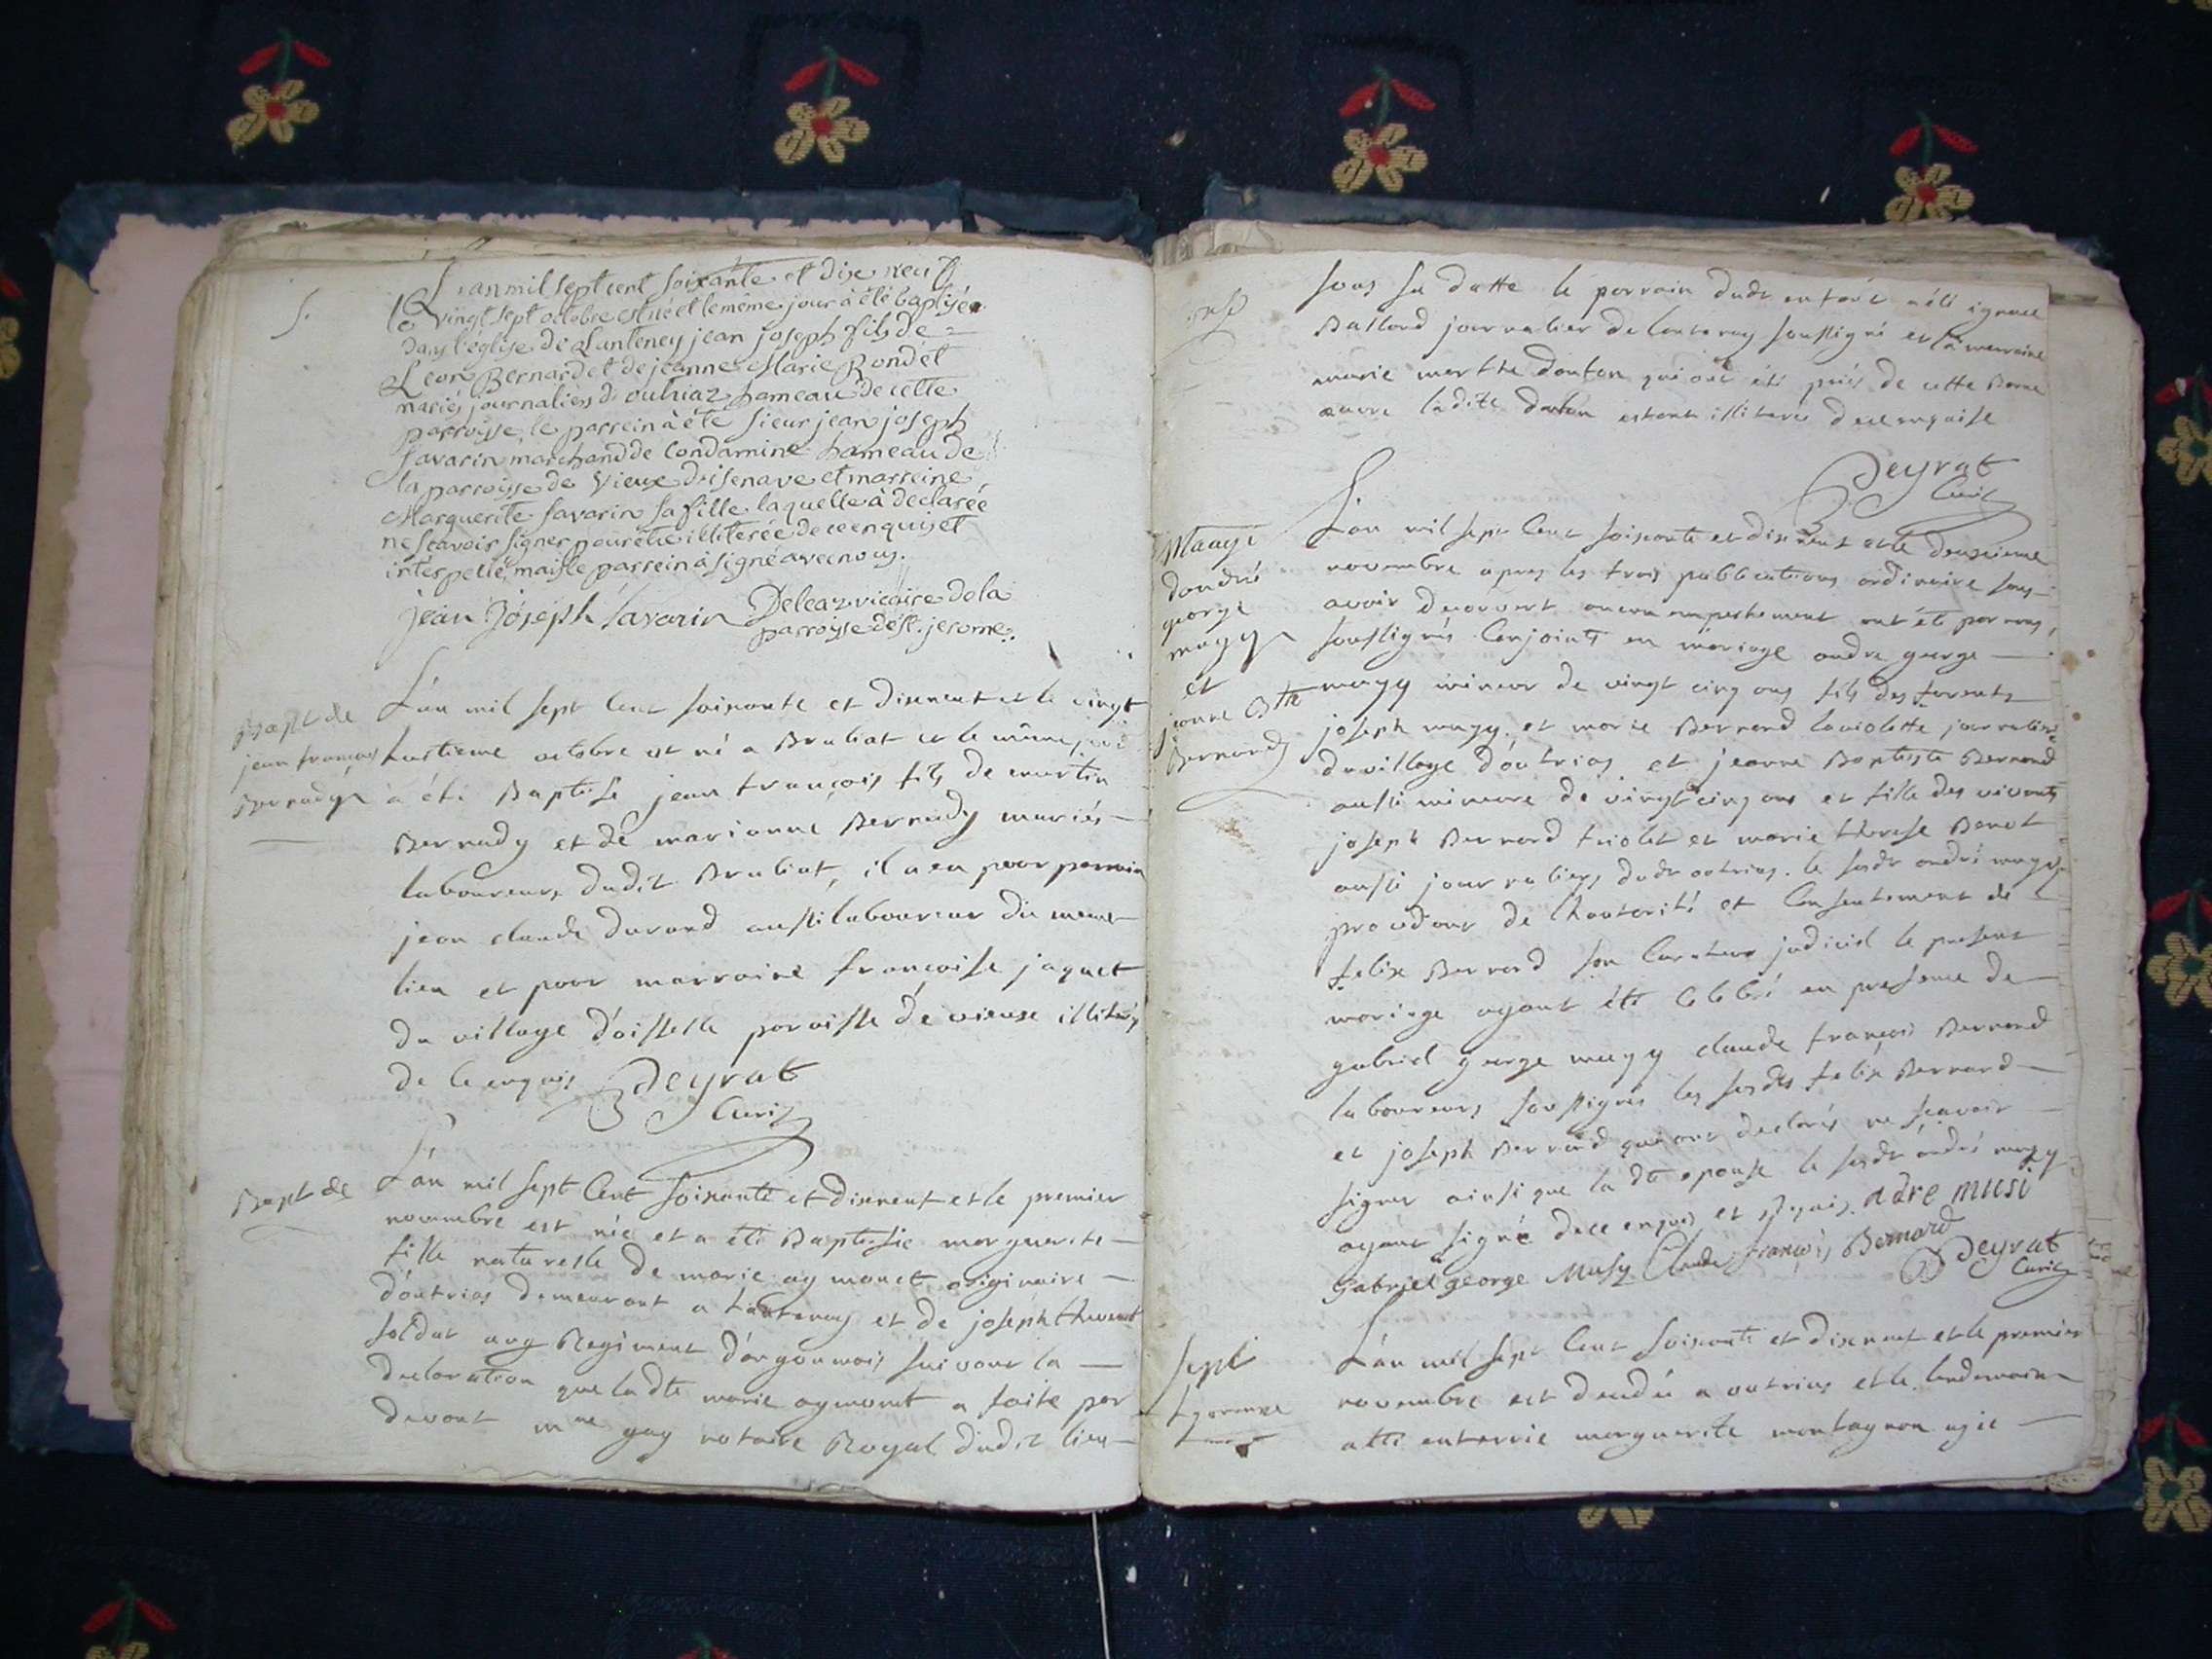 S.
L'an mil sept cent soixante et dix neuf
le vingt sept octobre est né et le même jour à été baptisé
dans l'eglise de Lanteney jean joseph fils de =
Leon Bernard et de jeanne Marie Rondet
mariés journaliers d'outriaz hameau de cette
parroisse, le parrein à été sieur jean joseph
savarin marchand de Condamine hameau de
la parroisse de Vieux disenave et marreine
Marguerite savarin sa fille laquelle à declarée
ne scavoir signer pour être illiterée de ce enquis et
interpellé, mais le parrein à signé avec nous.
jean Joseph savarin Deleaz vicaire de la
parroisse de st. jerome.
Bapt de
jean francois
Bernady
L'an mil sept cent soixante et dixneuf et le vingt
huitieme octobre est né a Brubiat et le même jour
a été Baptisé jean francois fils de martin
Bernady et de marianne Bernady mariés
laboureurs dudit Brubiat, il a eu pour parrain
jean claude durand aussi laboureur du meme
lieu et pour marraine francoise jaquet
du village d'oisselle paroisse de vieux
de ce enquis Deyrat
Curé
Bapt de
L'an mil sept Cent soixante et dixneuf et le premier
novembre est née et a été Baptisée marguerite
fille naturelle de marie aymonet originaire
d'outrias demeurant a lantenay et de joseph thevent
soldat au Regiment d'angoumois suivant la
declaration que ladte marie aymonet a faite par
devant me gay notaire Royal dudit lieu
sous sa datte le parrain dudt enfant a été ignace
Ballond journalier de lantenay soussigné et la marraine
marie marthe donton qui ont été priés de cette Bonne
œuvre ladite donton estant illiterée de ce enquise
Deyrat
Curé
S.
Mariage
dandré
george
mugy
et
jeanne Bte
Bernard
L'an mil sept Cent soixante et dixneuf et le douzieme
novembre apres les trois publications ordinaire sans
avoir decouvert aucun empeschement ont été par nous
soussignés Conjoints en mariage andré george
mugy mineur de vingt cinq ans fils des
joseph mugy et marie Bernard laviolette journaliers
du village d'outrias et jeanne Baptiste Bernard
aussi mineure de vingt cinq ans et fille des vivants
joseph Bernard triolet et marie therese Benot
aussi journaliers dudt outrias. le susdt andré mugy
procedant de l'hautorité et Consentement de
felix Bernard son Curateur judiciel le present
mariage ayant été Celebré en presence de
gabriel george mugy claude françois Bernard
laboureurs soussignés les susdts felix Bernard
et joseph Bernard qui ont declarés ne sçavoir
signer ainsi que la dte epouse le susdt andré mugy
ayant signé de ce enquis et requis. adre musi
Gabriel george Musy Claude françois Bernard
Deyrat
Curé
Sept
L'an mil sept Cent soixante et dixneuf et le premier
novembre est decedée a outrias et le lendemain
a été enterrée marguerite montagnon agée